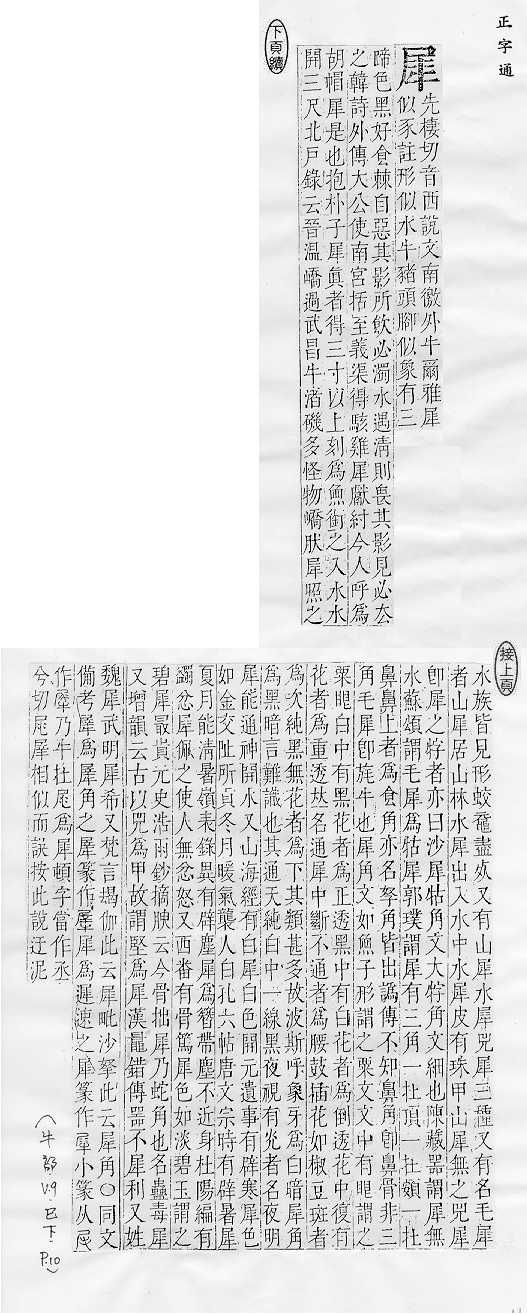 正字通
犀
先棲切音西說文南徼外牛爾雅犀
似豕註形似水牛豬頭腳似象有三
蹄色黑好食棘自惡其影所飲必濁水遇清則畏其影見必去
之韓詩外傳大公使南宮括至義渠得駭雞犀獻紂今人呼為
胡帽犀是也抱朴子犀眞者得三寸以上刻為魚銜之入水水
開三尺北戶錄云晉溫嶠過武昌牛渚磯多怪物嶠肰犀照之
下頁續
接上頁
水族皆見形蛟鼉盡烖又有山犀水犀兕犀三種又有名毛犀
者山犀居山林水犀出入水中水犀皮有珠甲山犀無之兕犀
卽犀之牸者亦曰沙犀牯角文大牸角文細也陳藏器謂犀無
水蘇頌謂毛犀為牯犀郭璞謂犀有三角一在頂一在頟一在
鼻鼻上者為食角亦名孥角皆出譌傳不知鼻角卽鼻骨非三
角毛犀卽旄牛也犀角文如魚子形謂之粟文文中有眼謂之
粟眼白中有黑花者為正透黑中有白花者為倒透花中復有
花者為重透並名通犀中斷不通者為腰鼓插花如椒豆斑者
為次純黑無花者為下其類甚多故波斯呼象牙為白暗犀角
為黑暗言難識也其通天純白中一線黑夜視有光者名夜明
犀能通神開水又山海經有白犀白色開元遺事有辟寒犀色
如金交阯所貢冬月暖氣襲人白孔六帖唐文宗時有辟暑犀
夏月能清暑嶺表錄異有辟塵犀為簪帶塵不近身杜陽編有
蠲忿犀佩之使人無忿怒又西番有骨篤犀色如淡碧玉謂之
碧犀最貴元史浩雨鈔摘腴云今骨㧌犀乃蛇角也名蠱毒犀
又增韻云古以兕為甲故謂堅為犀漢鼂錯傳器不犀利又姓
魏犀武明犀希又梵言朅伽此云犀毗沙拏此云犀角〇同文
備考犀為犀角之犀篆作犀犀為遲速之犀篆作犀小篆从尾
作犀乃牛在尾為犀頓字當作丞
兮切尾犀相似而誤按此說迂泥
(牛部 V.9 巳下 P.10)